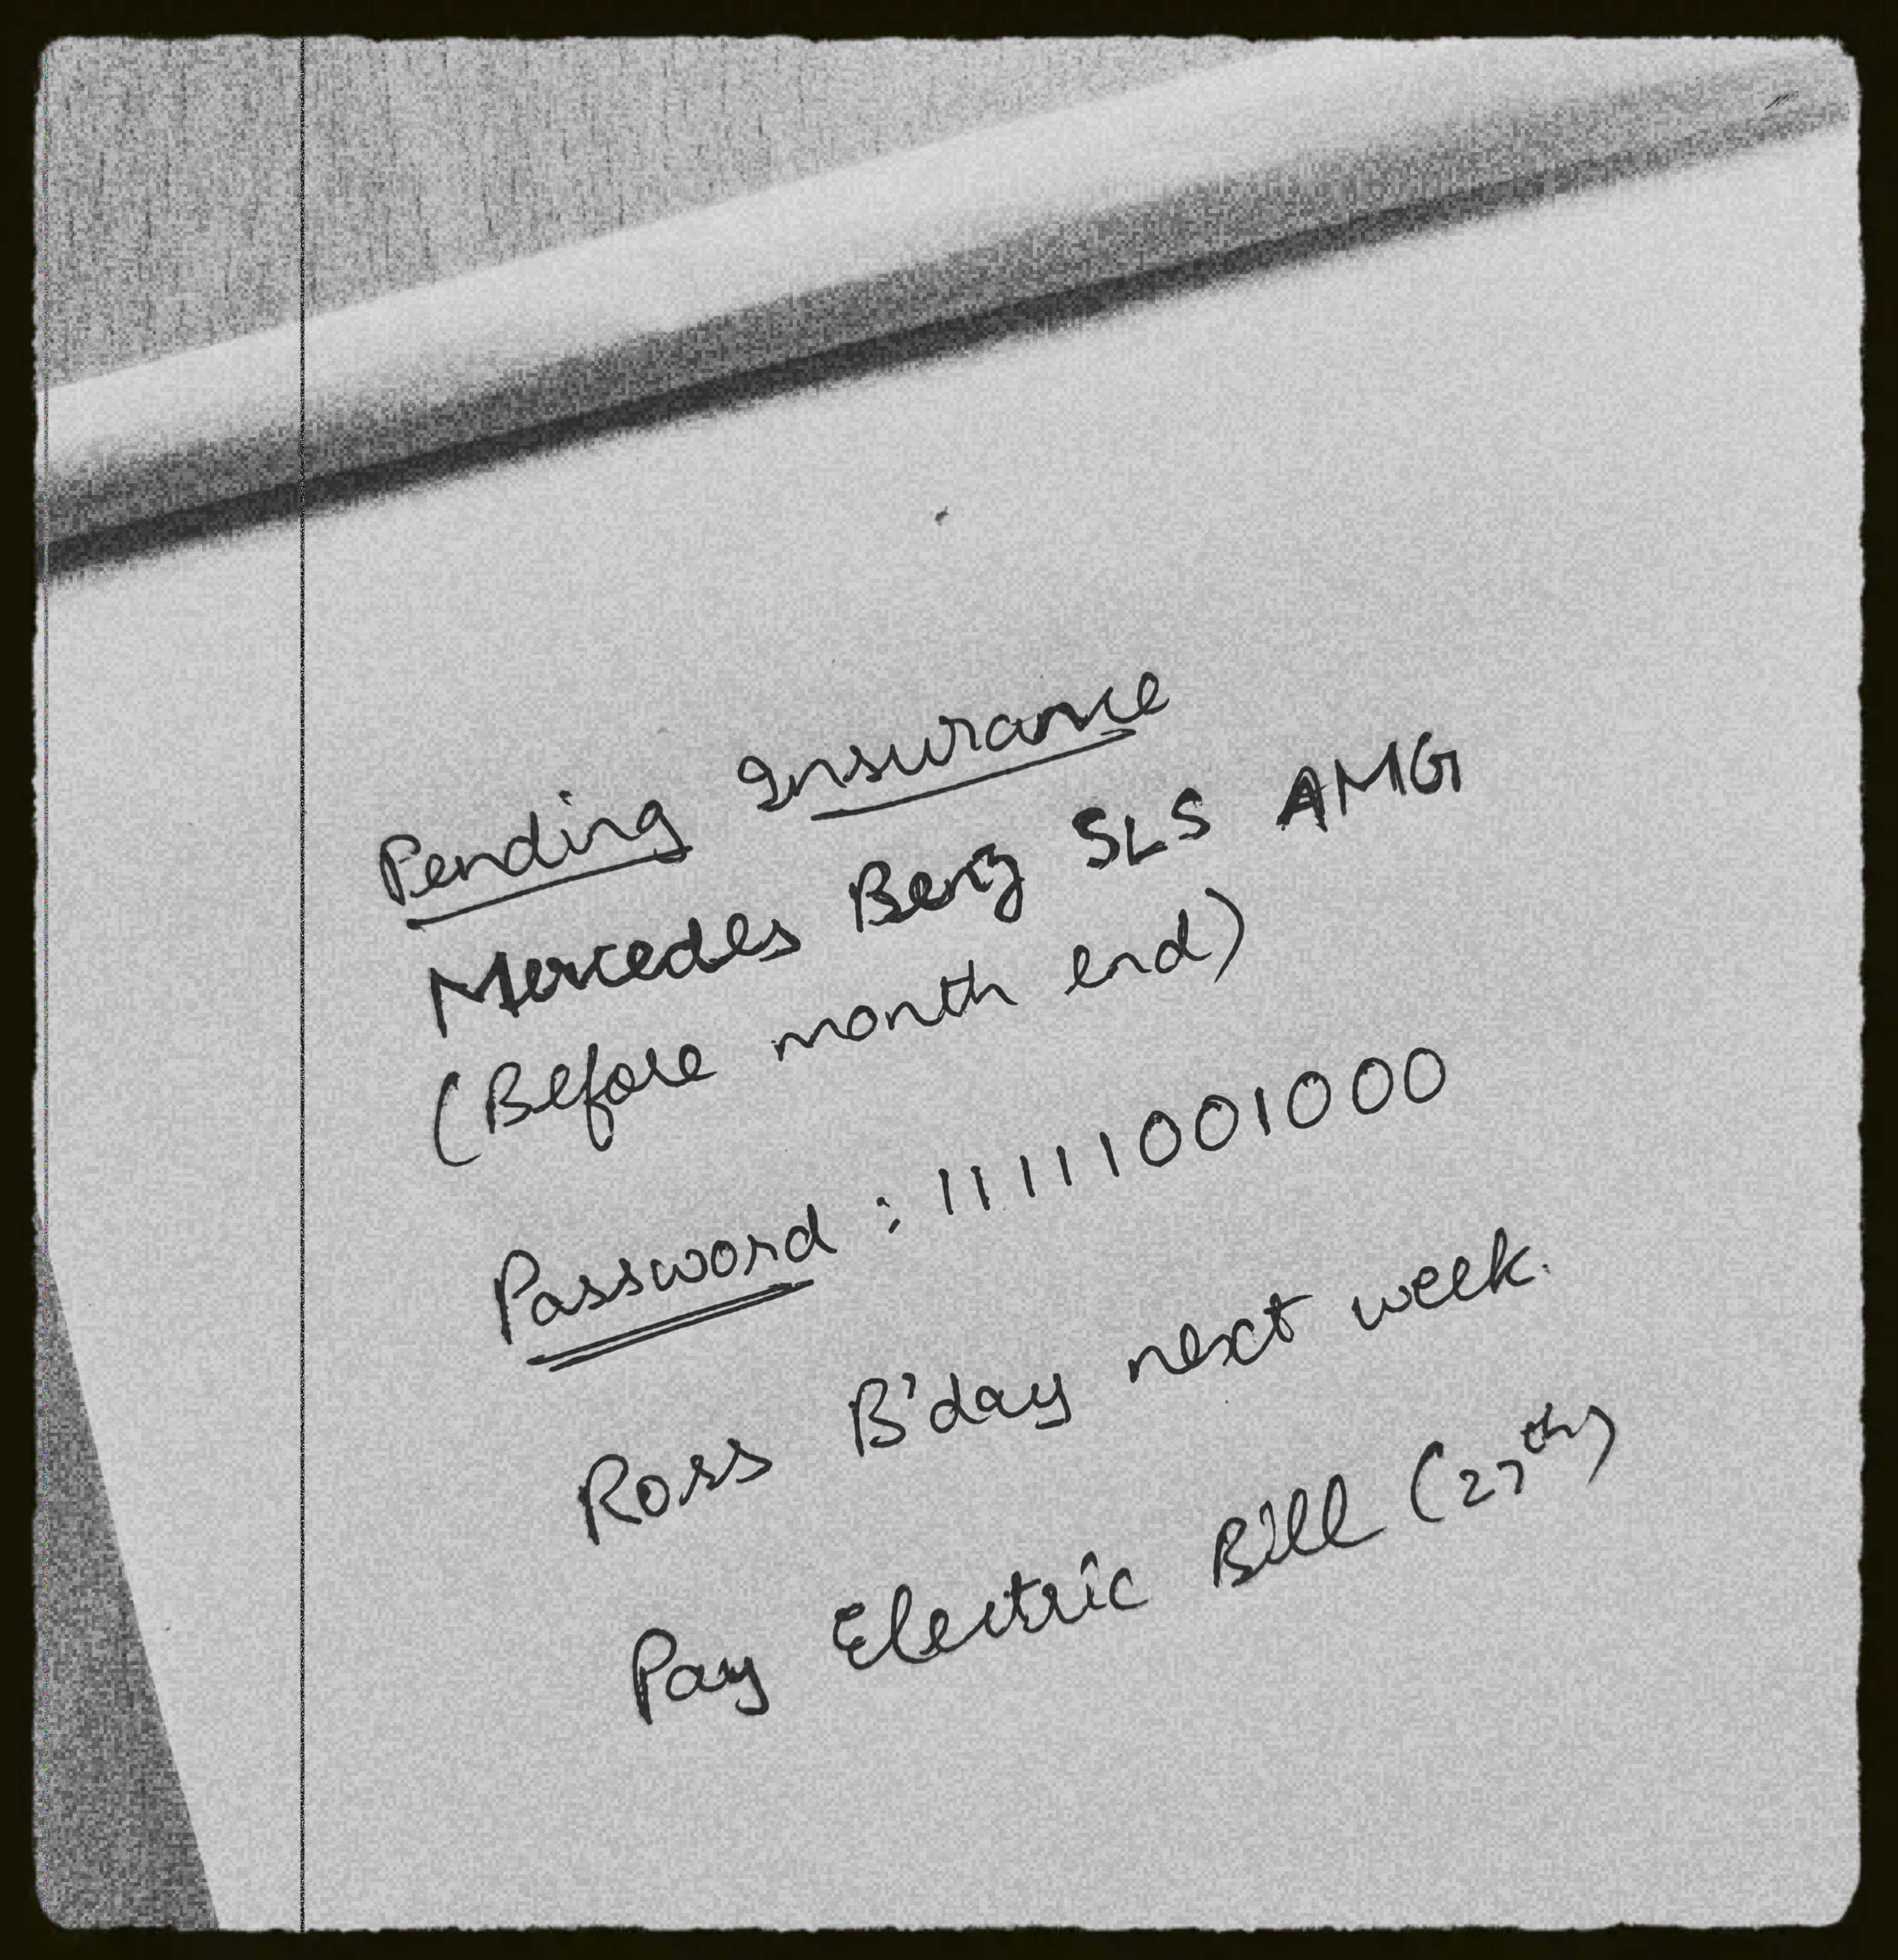 Pending Insurance
Mercedes Benz SLS AMG
(Before month end)
Password : 11111001000
Ross B'day next week.
Pay Electric Bill (27th)